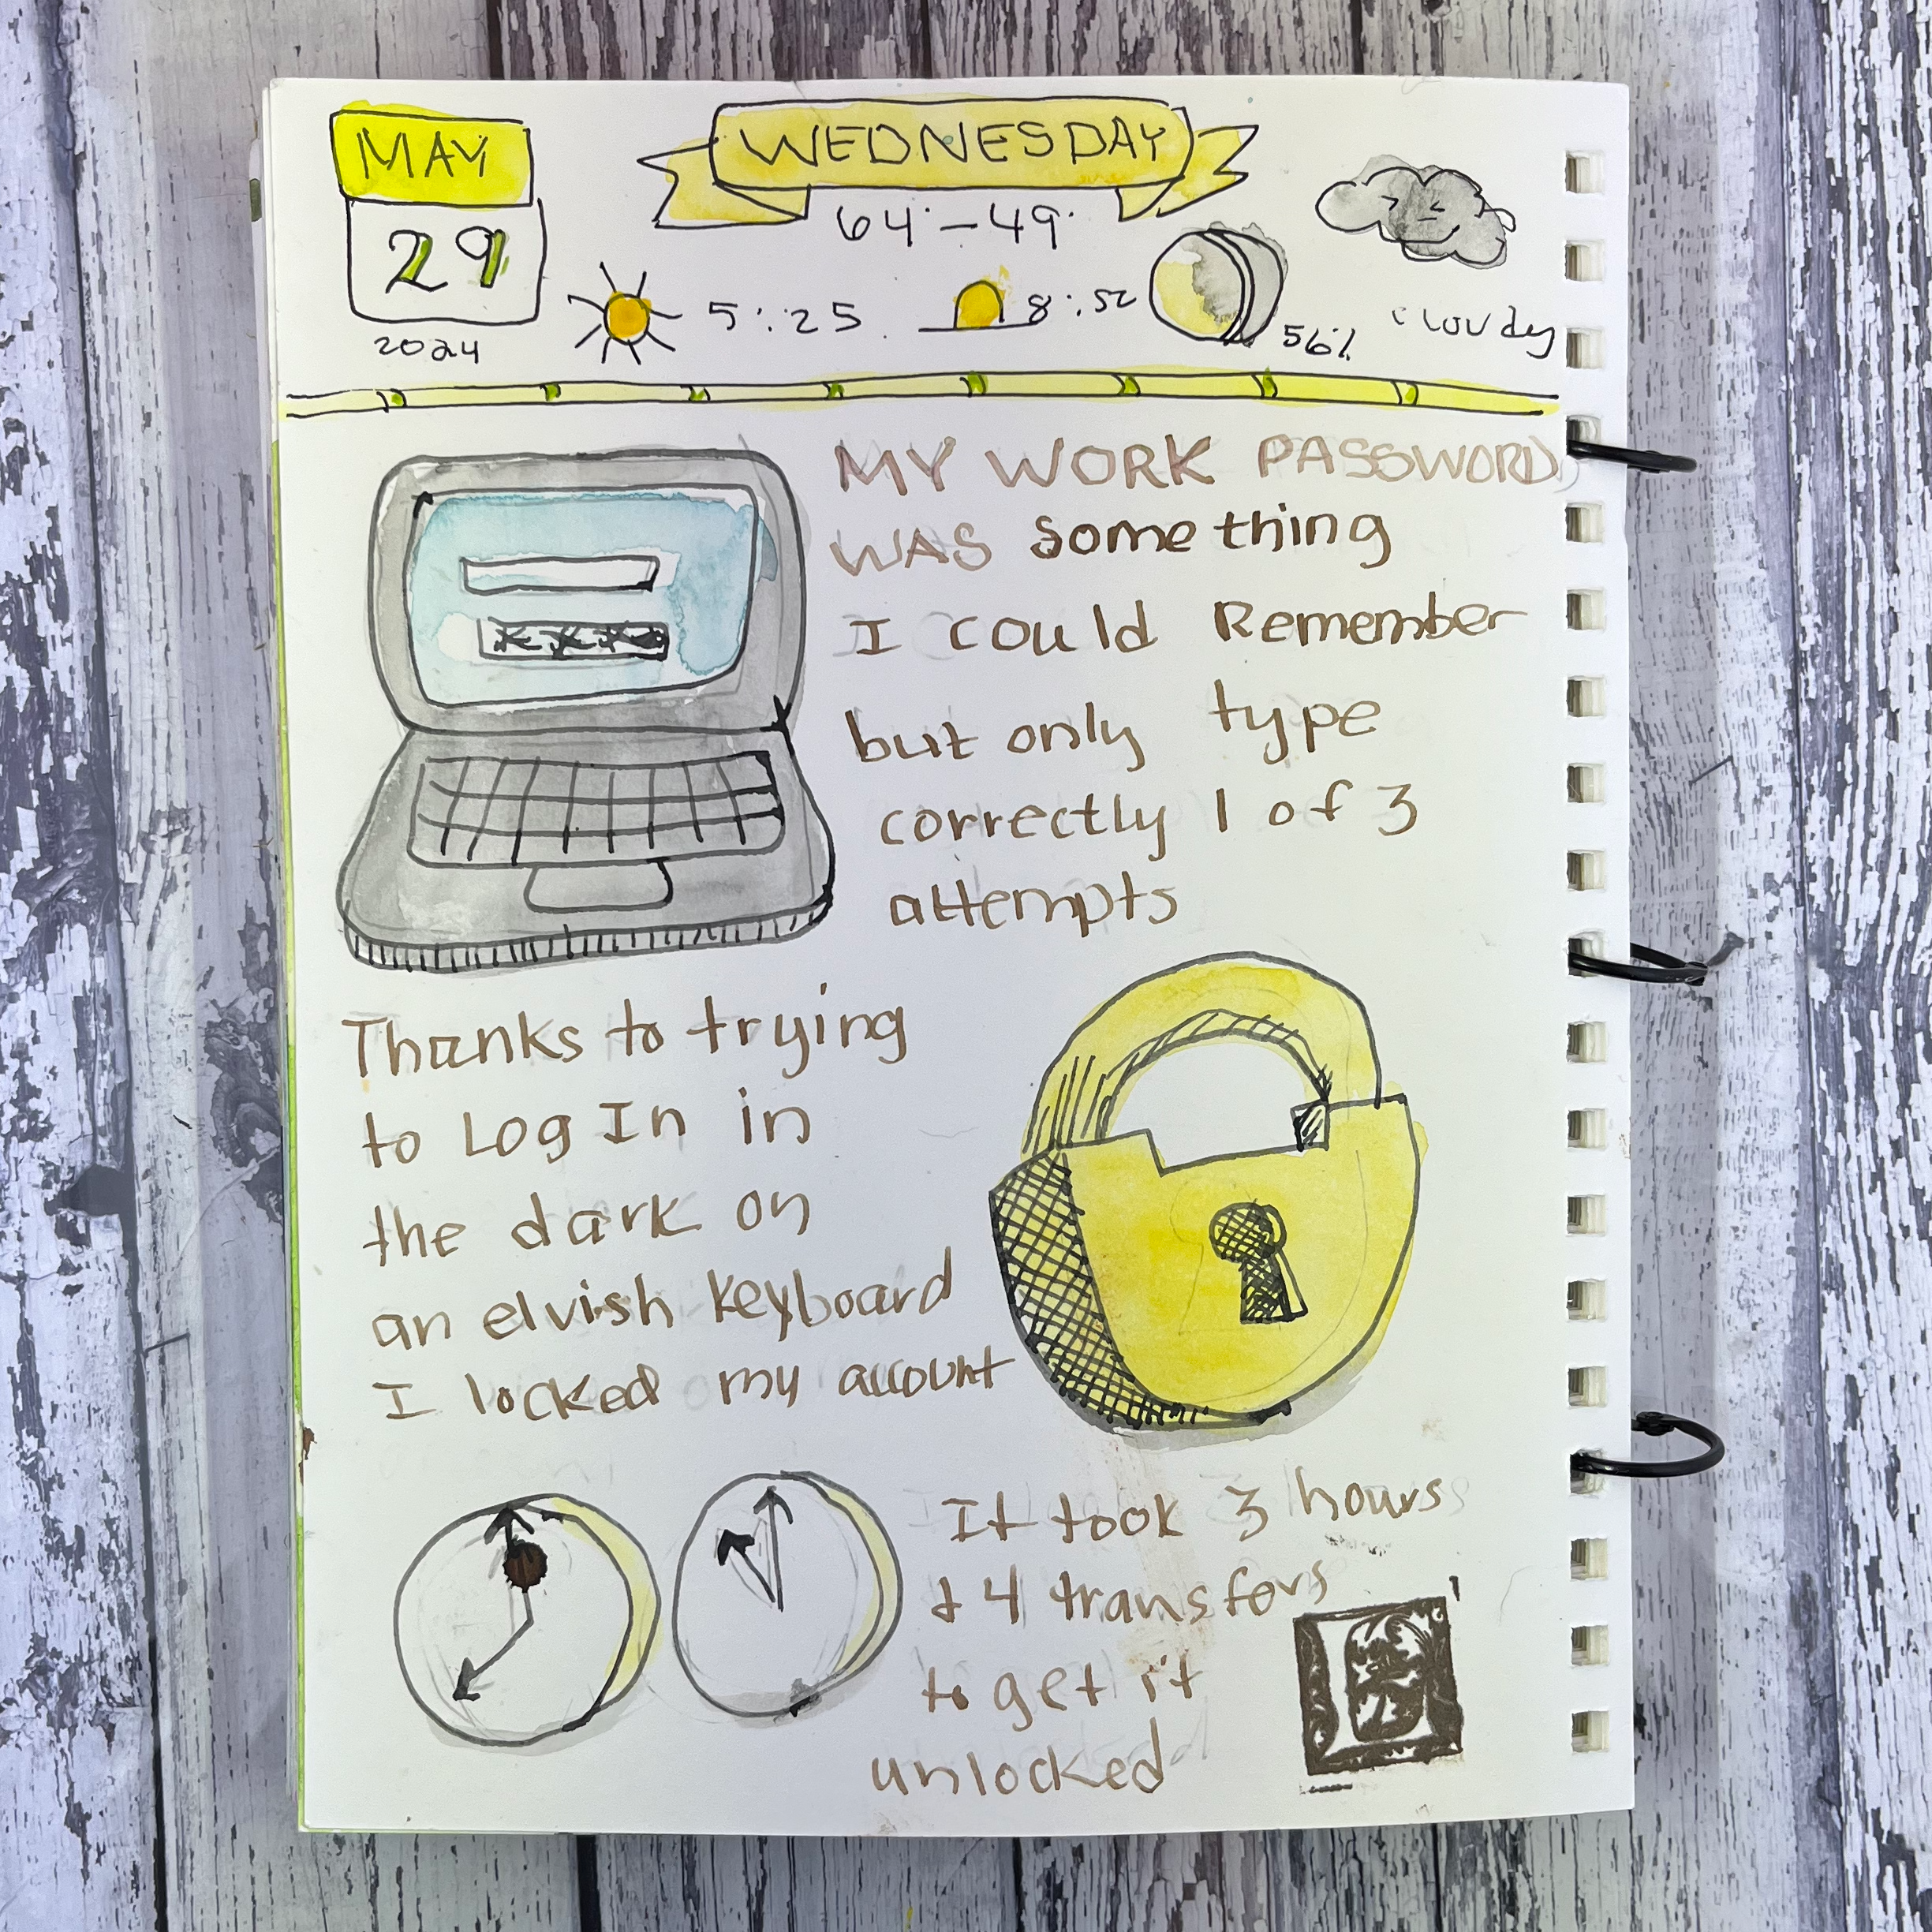 MAY
29
2024
WEDNESDAY
64°-49°
5:25
8:52
56%
cloudy
MY WORK PASSWORD
WAS something
I could Remember
but only type
correctly 1 of 3
attempts
Thanks to trying
to Log In in
the dark on
an elvish keyboard
I locked my account
It took 3 hours
& 4 transfers
to get it
unlocked